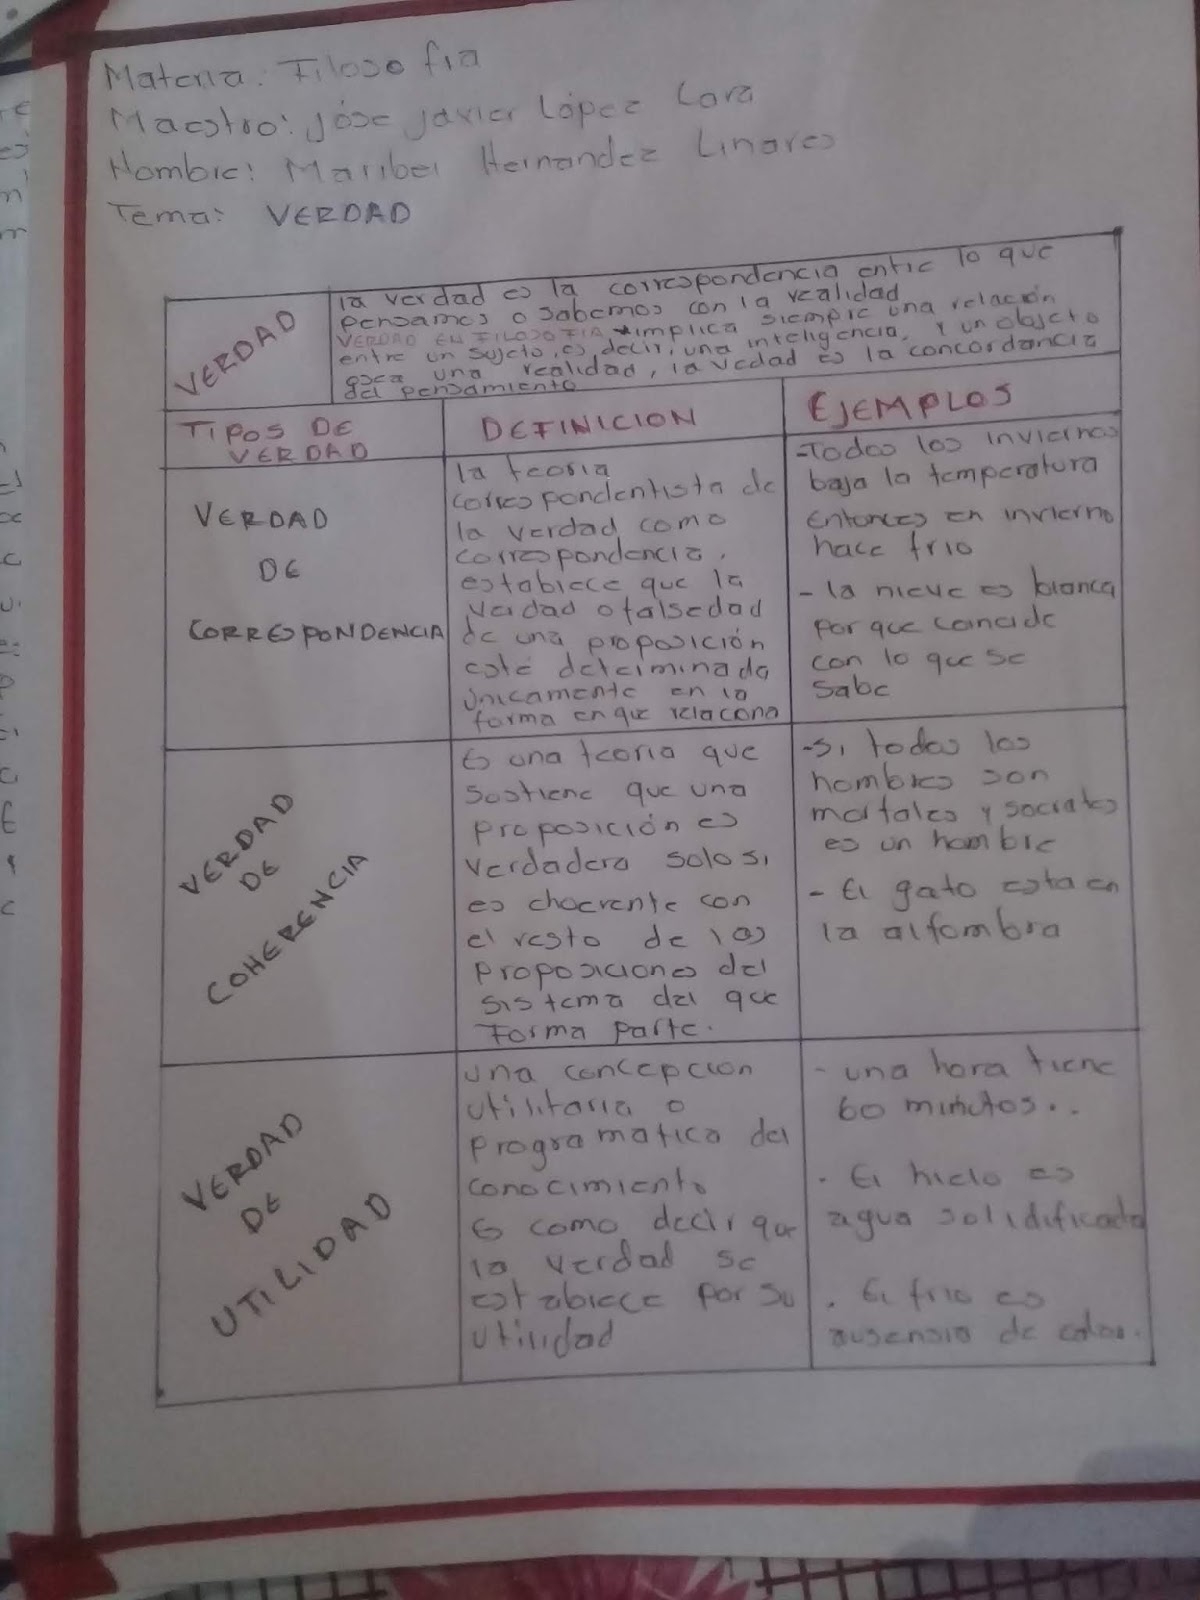 Materia: Filosofia
Maestro: Jóse Javier López Lara
Nombre: Maribel Hernandez Linares
Tema: VERDAD
VERDAD
la verdad es la correspondencia entre lo que
pensamos o sabemos con la realidad
VERDAD EN FILOSOFIA implica siempre una relación
entre un sujeto, es decir, una inteligencia, y un objeto
osea una realidad, la vedad es la concordancia
del pensamiento
TIPOS DE
VERDAD
DEFINICION
EJEMPLOS
VERDAD
DE
CORRESPONDENCIA
la teoria
correspondentista de
la verdad como
correspondencia,
establece que la
verdad o falsedad
de una proposición
esté determinada
únicamente en la
forma en que relacona
-Todos los inviernos
baja la temperatura
Entonces en invierno
hace frio
- la nieve es blanca
por que coincide
con lo que se
sabe
VERDAD
DE
COHERENCIA
Es una teoria que
sostiene que una
proposición es
verdadera solo si
es choerente con
el resto de las
proposiciones del
sistema del que
Forma parte.
-Si todos los
hombres son
mortales y socrates
es un hombre
- El gato esta en
la alfombra
VERDAD
DE
UTILIDAD
una concepcion
utilitaria o
programatica del
conocimiento
Es como decir que
la verdad se
establece por su
utilidad
- una hora tiene
60 minutos..
. El hielo es
agua solidificada
. El frio es
ausensia de calor.